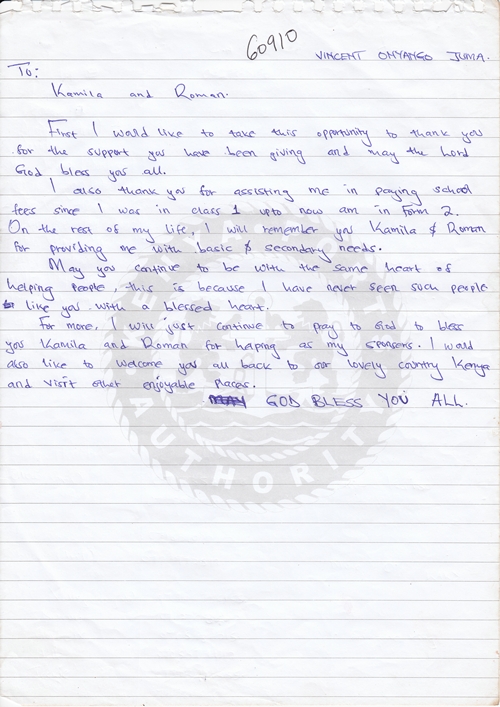 60910
VINCENT ONYANGO JUMA.
To:
Kamila and Roman.
First I would like to take this opportunity to thank you
for the support you have been giving and may the Lord
God bless you all.
I also thank you for assisting me in paying school
fees since I was in class 1 upto now am in Form 2.
On the rest of my life, I will remember you Kamila & Roman
for providing me with basic & secondary needs.
May you continue to be with the same heart of
helping people, this is because I have never seen such people
like you with a blessed heart.
For more, I will just continue to pray to God to bless
you Kamila and Roman for helping as my sponsers. I would
also like to welcome you all back to our lovely country Kenya
and visit other enjoyable places.
GOD BLESS YOU ALL.
AUTHORITY